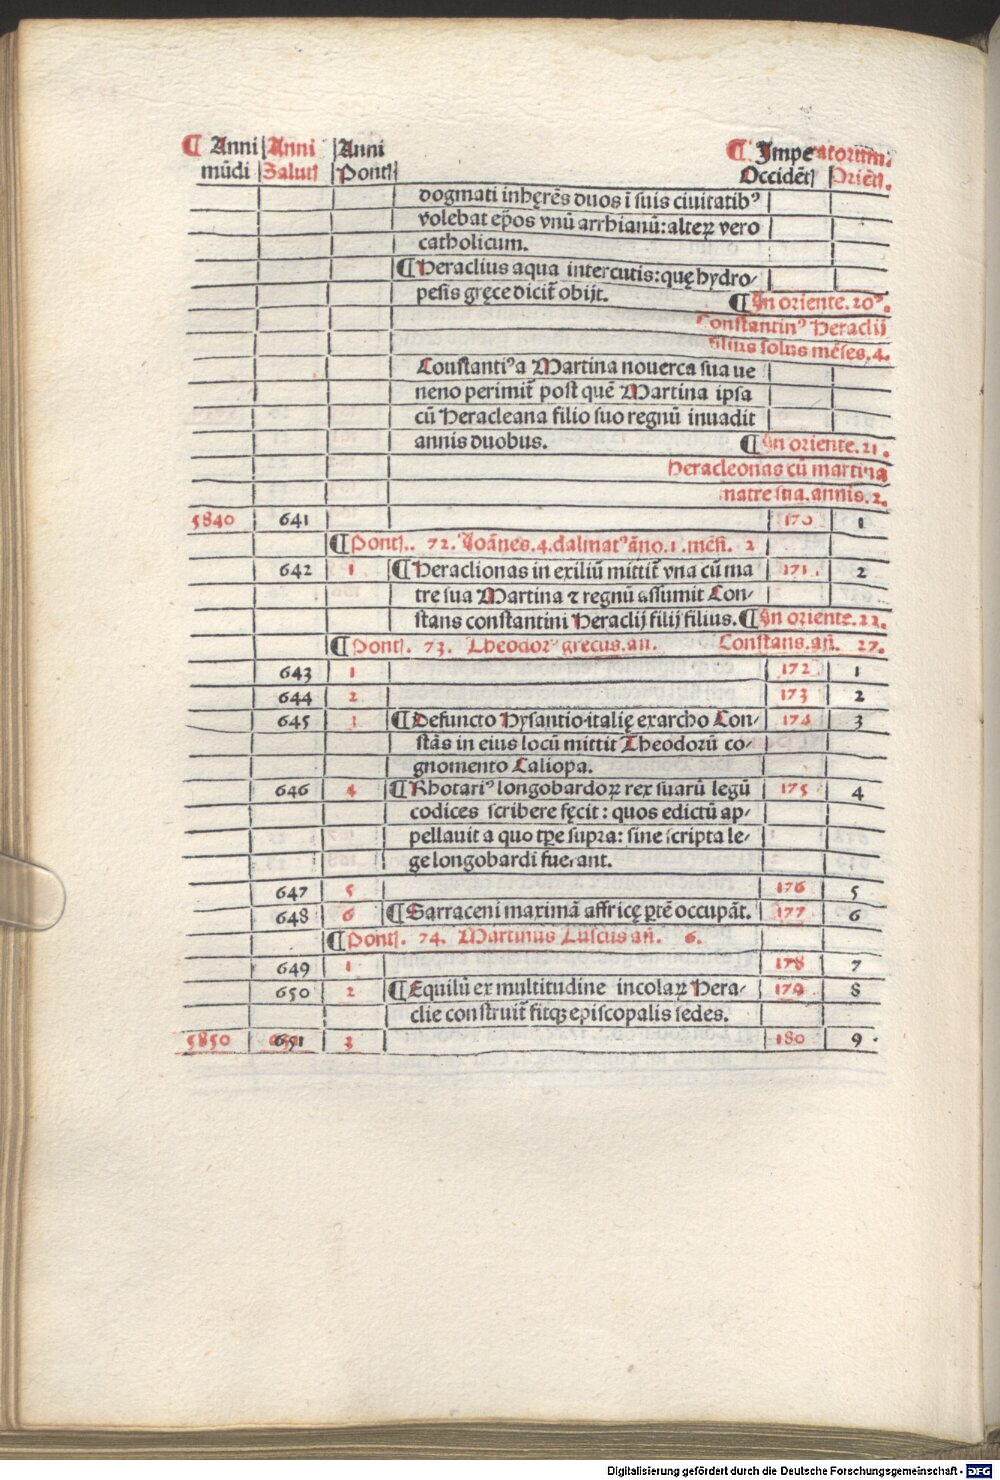 ¶ Anni Anni Anni ¶ Imperatorum.
mūdi Salutꝭ Pontꝭ Occidētꝭ Oriētꝭ.
dogmati inhęrēs duos ī suis ciuitatibꝰ
volebat ep̄os vnū arrhianū: alteꝝ vero
catholicum.
¶ Heraclius aqua intercutis: quę hydro-
pesis gręce dicit̄ obijt. ¶ In oriente. 20ꝰ.
Constantinꝰ Heraclij
filius solus mēses. 4.
Constantiꝰ a Martina nouerca sua ue
neno perimit̄ post quē Martina ipsa
cū Heracleana filio suo regnū inuadit
annis duobus. ¶ In oriente. 21.
Heracleonas cū martina
matre sua. annis. 2.
5840 641 170 1
¶ Pontꝭ. 72. Ioānes. 4. dalmatꝰ āno. 1. mēs̄. 2
642 1 ¶ Heraclionas in exiliū mittit̄ vna cū ma 171 2
tre sua Martina ⁊ regnū assumit Con-
stans constantini Heraclij filij filius. ¶ In oriente. 22.
¶ Pontꝭ. 73. Theodorꝰ grecus. an. Constans. an̄. 27.
643 1 172 1
644 2 173 2
645 3 ¶ Defuncto Hysantio italię exarcho Con- 174 3
stās in eius locū mittit Theodorū co-
gnomento Caliopa.
646 4 ¶ Rhotariꝰ longobardoꝝ rex suarū legū 175 4
codices scribere fęcit: quos edictū ap-
pellauit a quo tp̄e supra: sine scripta le-
ge longobardi fuerant.
647 5 176 5
648 6 ¶ Sarraceni maximā affricę ꝑtē occupāt. 177 6
¶ Pontꝭ. 74. Martinus Tuscus an̄. 6.
649 1 178 7
650 2 ¶ Equilū ex multitudine incolaꝝ Hera- 179 8
clie construit̄ fitqꝫ episcopalis sedes.
5850 651 3 180 9
Digitalisierung gefördert durch die Deutsche Forschungsgemeinschaft - DFG